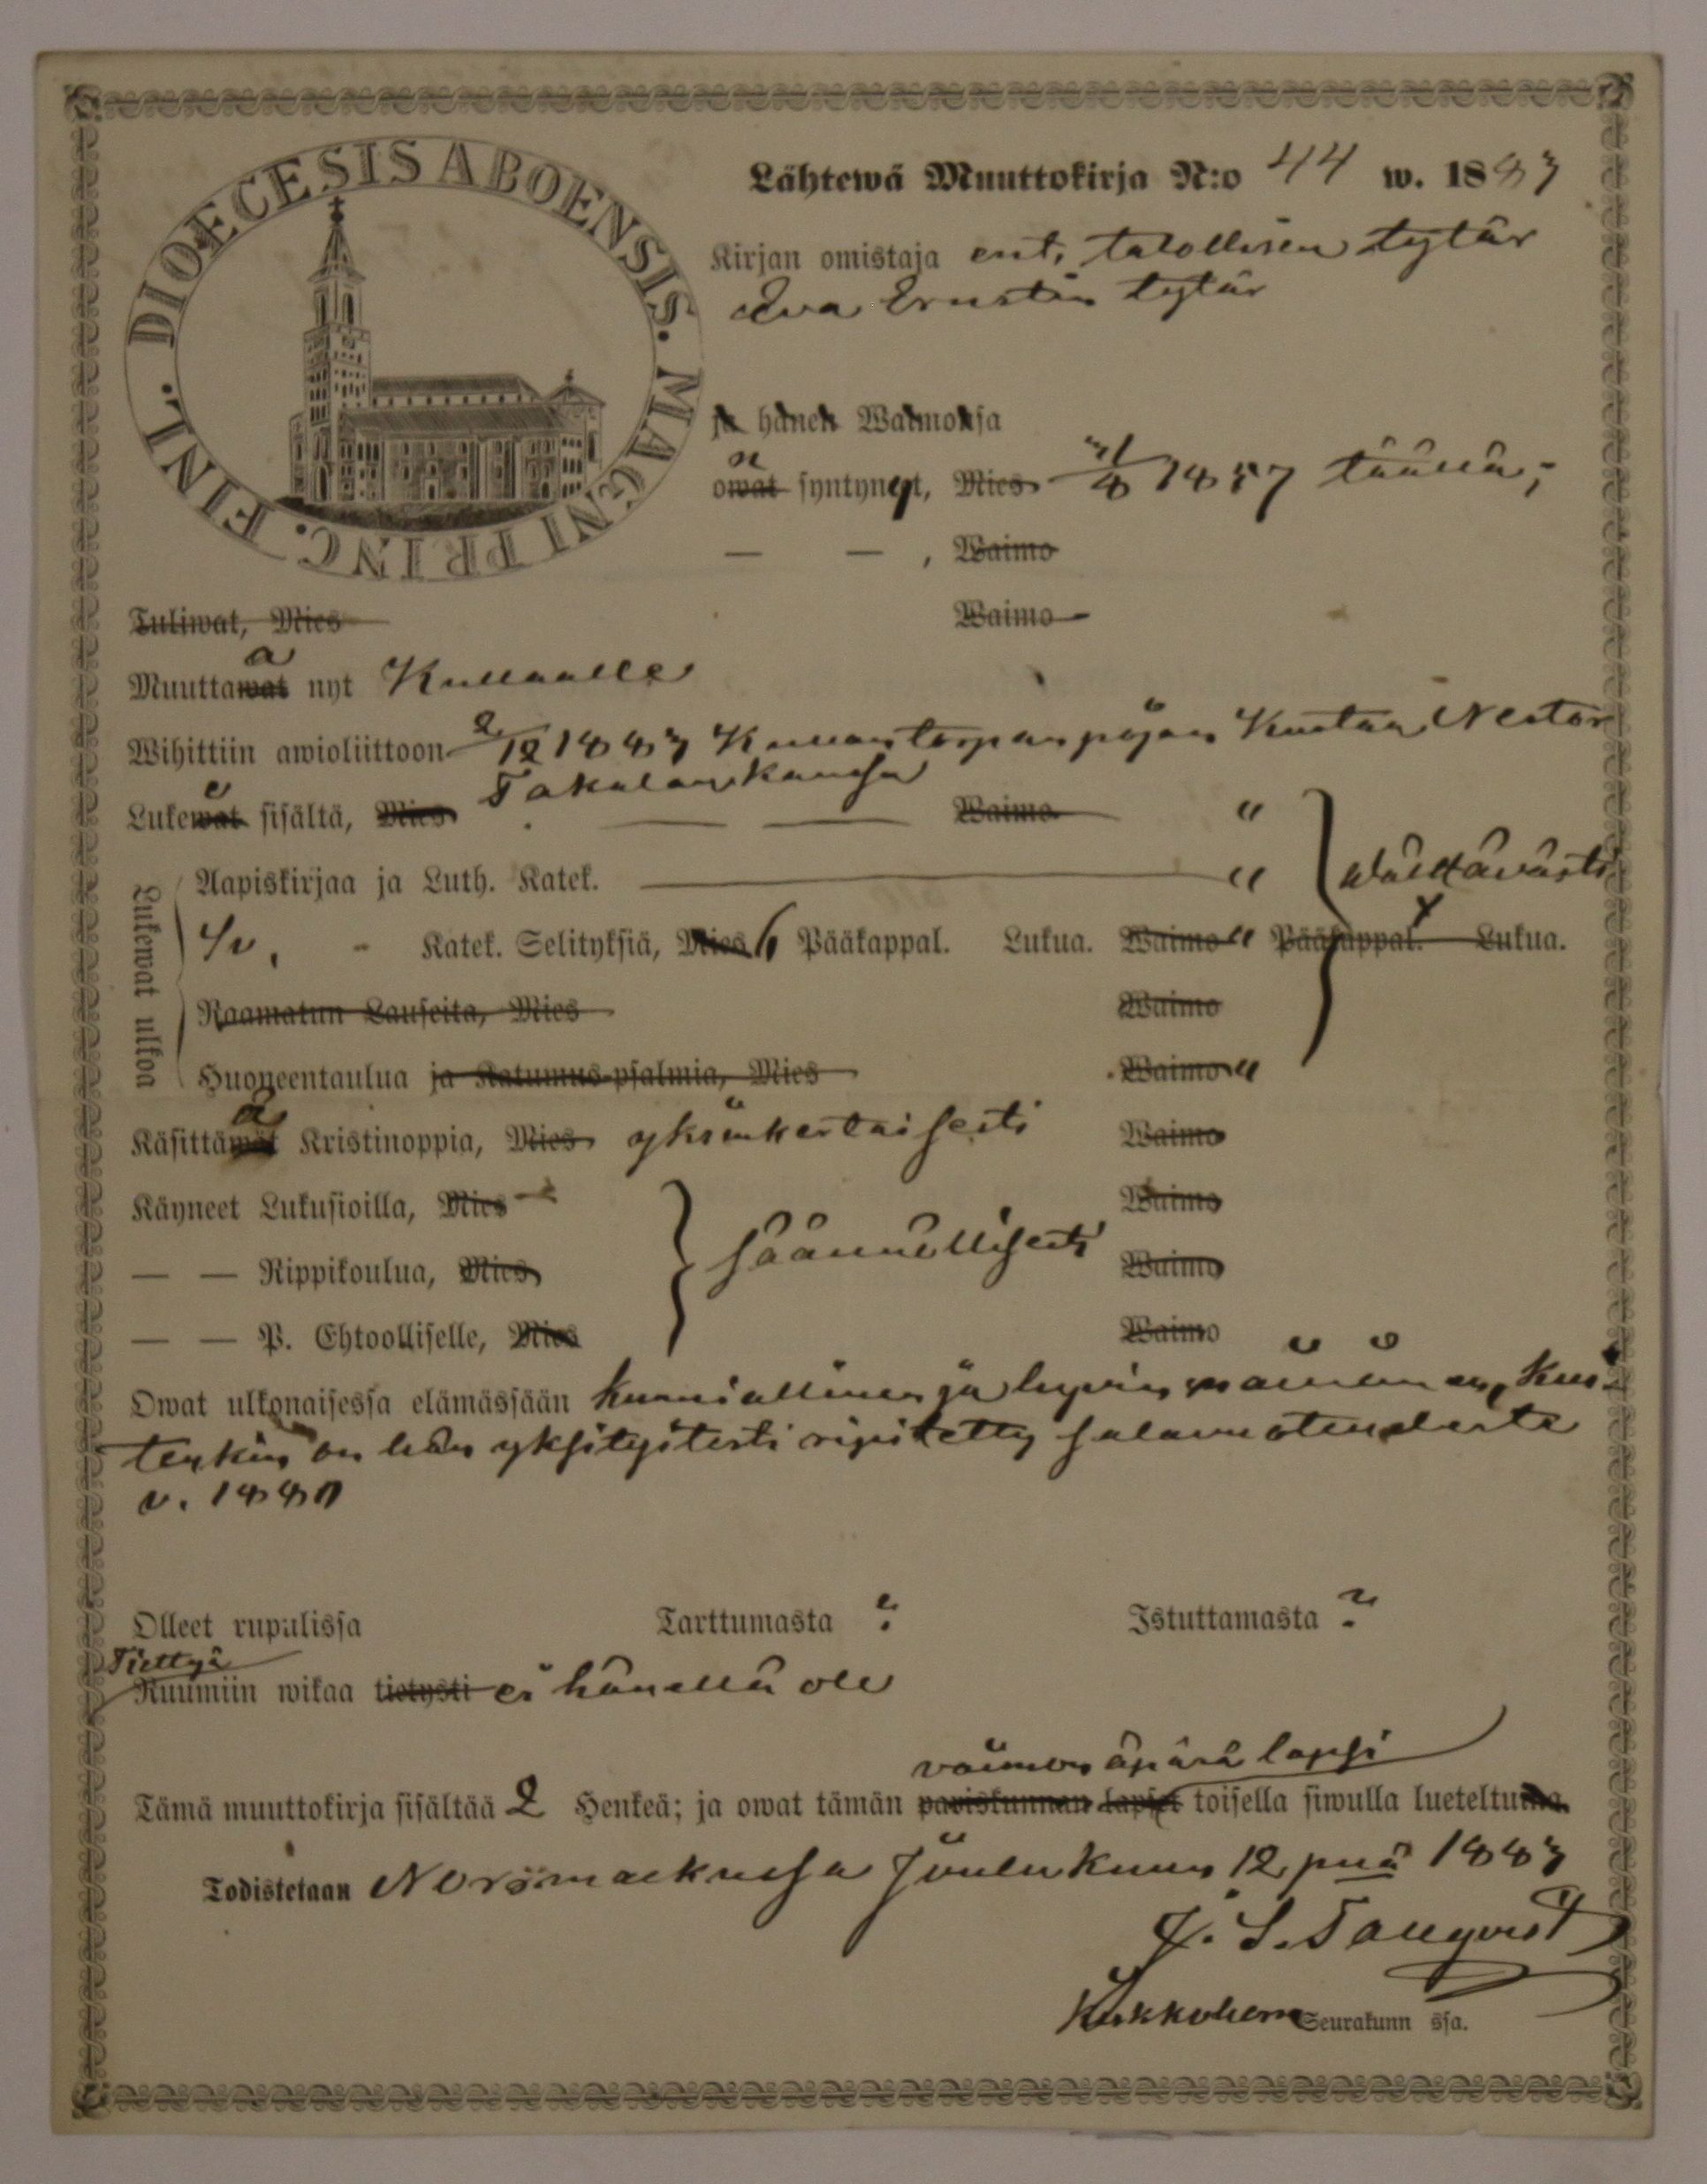 DIOECESIS ABOENSIS. MAGNI PRINC. FINL.
Lähtewä Muuttokirja N:o 44 w. 1883
Kirjan omistaja ent. talollisen tytär
Eva Ernstin tytär
ja hänen Waimonsa
owat syntynyt, Mies /8 1857 täällä;
— — , Waimo
Tuliwat, Mies Waimo
Muuttawat nyt Kullaalle
Wihittiin awioliittoon 2/12 1883 Kullaan torpan pojan Kustaa Nestor
Takalan kanssa
Lukewat sisältä, Mies — — Waimo "
Aapiskirjaa ja Luth. Katek. — "
Lukewat ulkoa
Sv. - Katek. Selityksiä, Mies 6 Pääkappal. Lukua. Waimo " Pääkappal. Lukua.
wälttävästi
Raamatun Lauseita, Mies Waimo
Huoneentaulua ja Katumus-psalmia, Mies Waimo "
Käsittäwät Kristinoppia, Mies yksinkertaisesti Waimo
Käyneet Lukusioilla, Mies Waimo
— — Rippikoulua, Mies säännöllisesti Waimo
— — P. Ehtoolliselle, Mies Waimo
Owat ulkonaisessa elämässään kunniallinen ja hyvin mainittu, kui-
tenkin on hän yksityisesti ripitetty salavuoteudesta
v. 1880
Olleet rupulissa Tarttumasta ? Istuttamasta ?
Tiettyä
Ruumiin wikaa tietysti ei hänellä ole
vaimon äpärä lapsi
Tämä muuttokirja sisältää 2 Henkeä; ja owat tämän pariskunnan lapset toisella siwulla lueteltuina.
Todistetaan Norrmarkussa Joulukuun 12 pnä 1883
Kirkkoherra Seurakunn ssa.